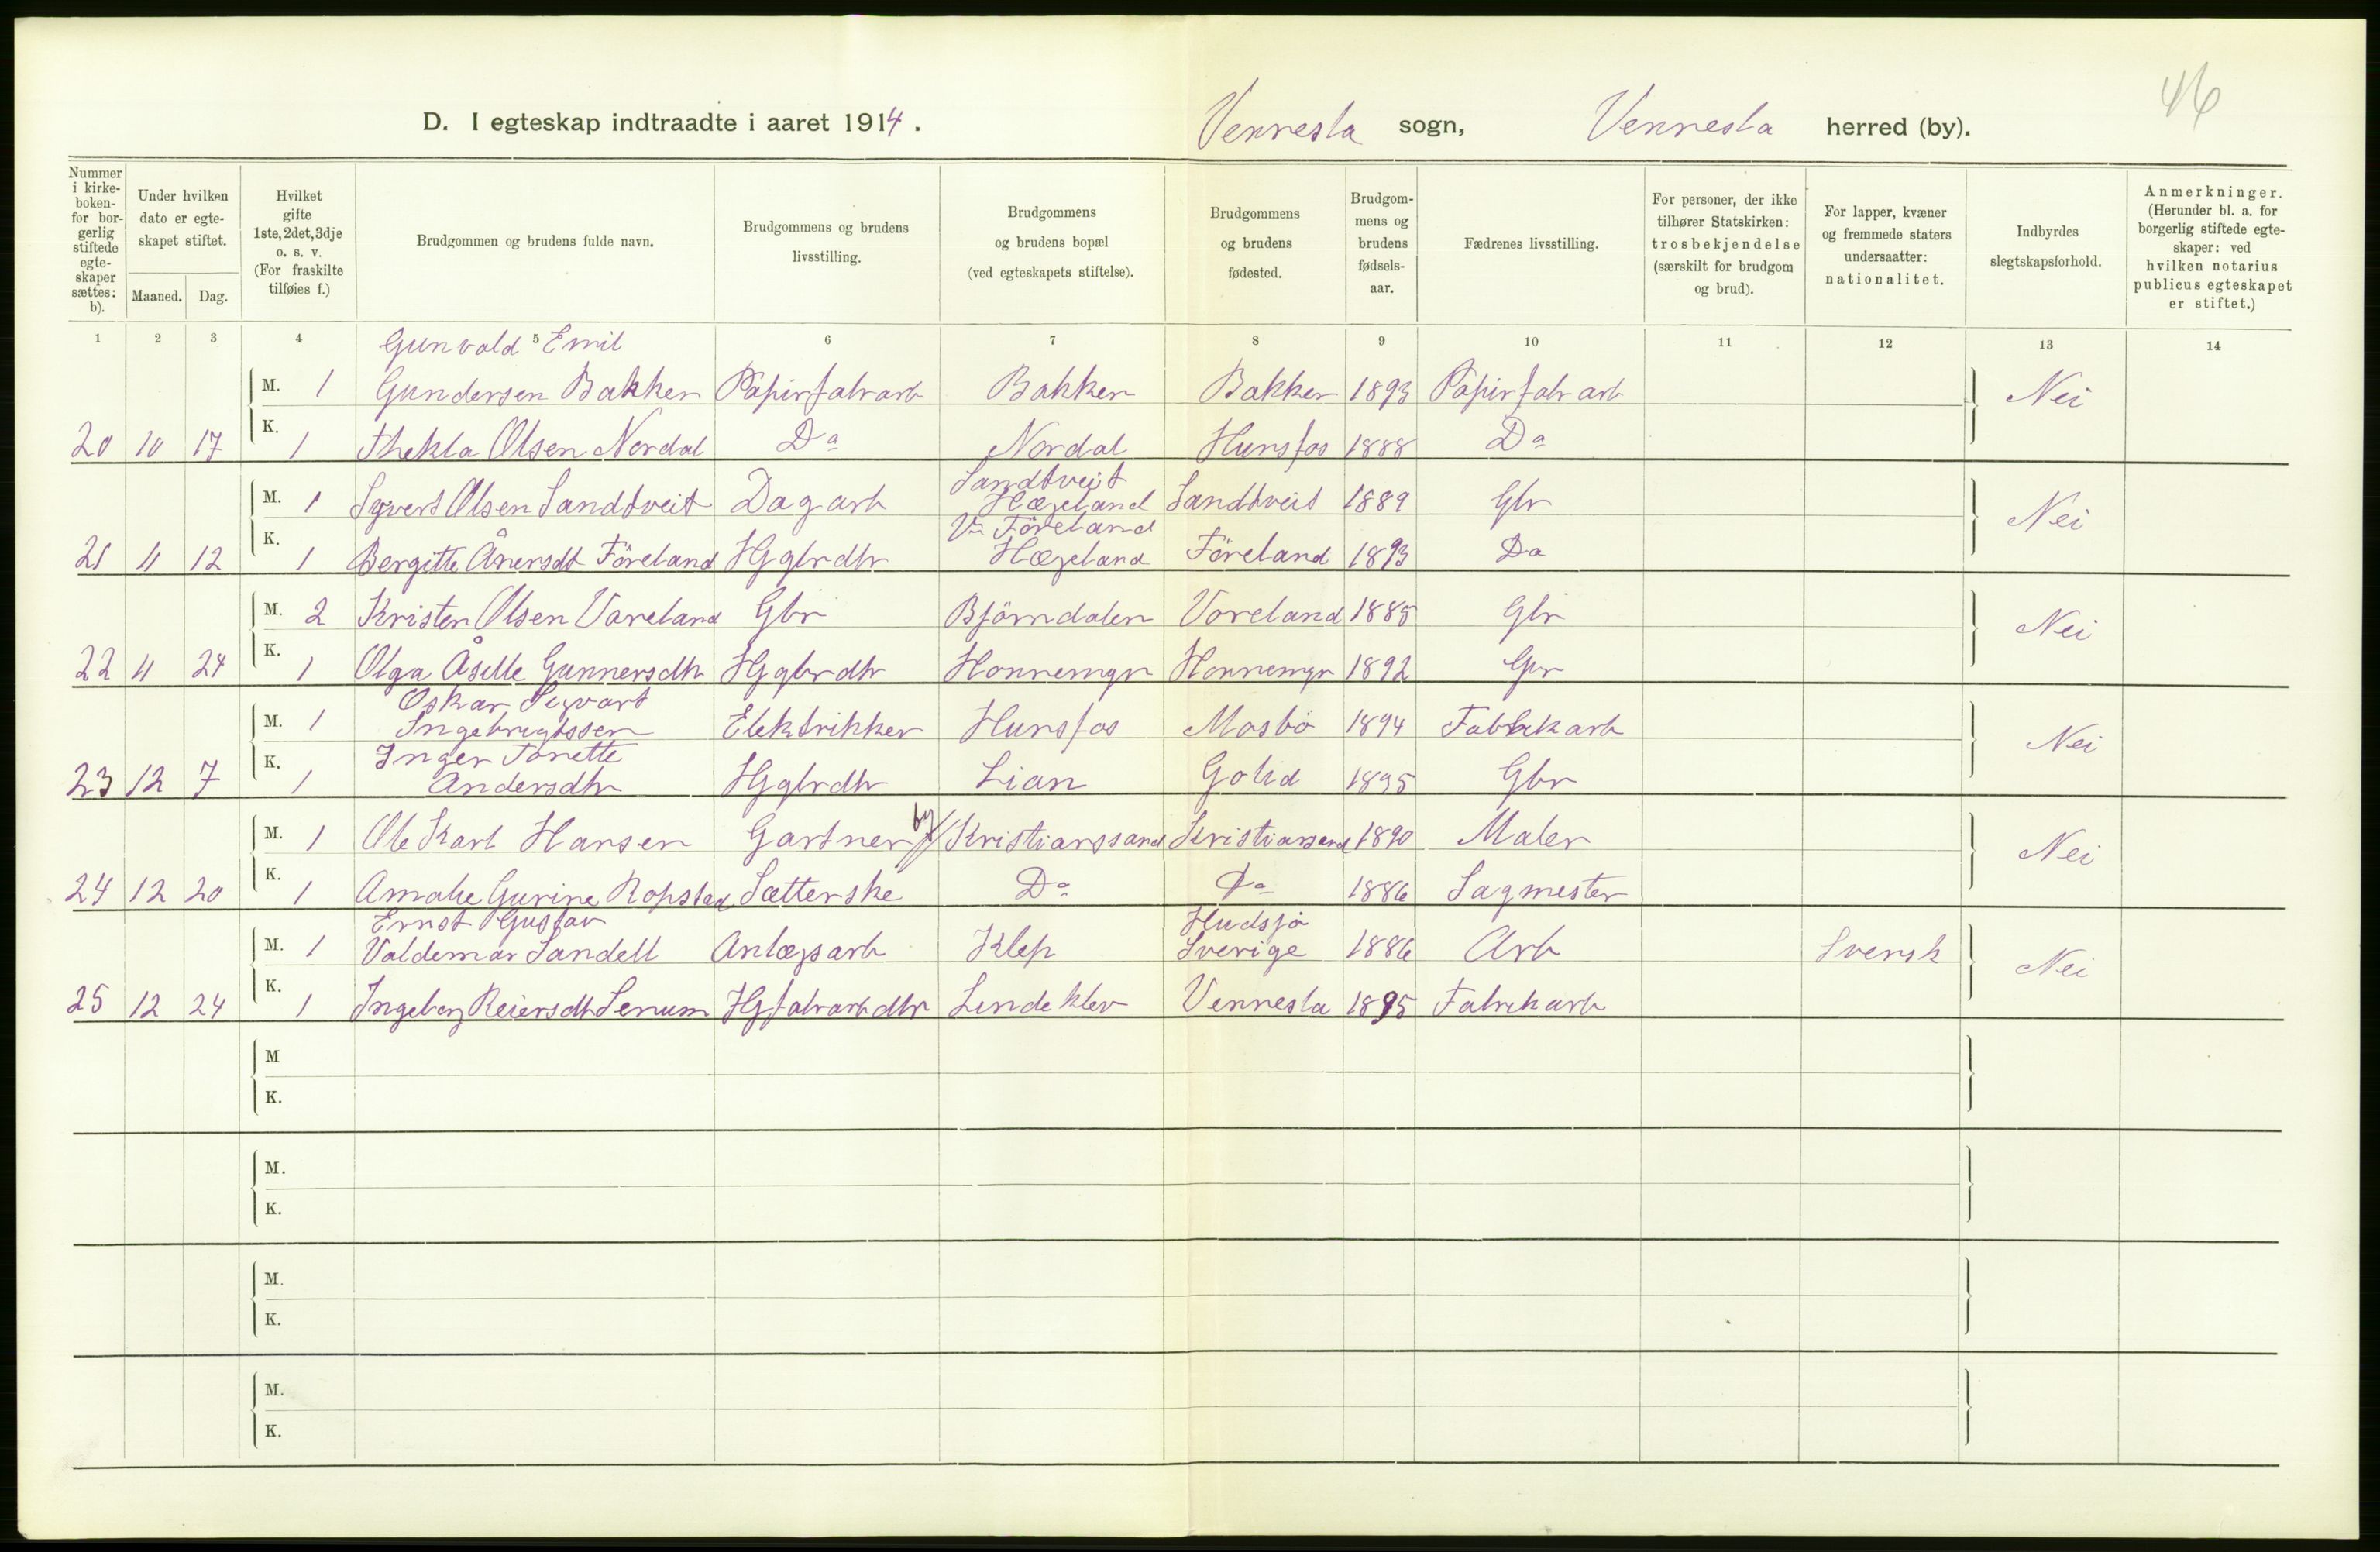 46
D. I egteskap indtraadte i aaret 1914. Vennesla sogn, Vennesla herred (by).
Nummer i kirke-boken for bor-gerlig stiftede egte-skaper sættes: b).
Under hvilken dato er egte-skapet stiftet.
Maaned. Dag.
Hvilket gifte 1ste, 2det, 3dje o. s. v. (For fraskilte tilføies f.)
Brudgommen og brudens fulde navn.
Brudgommens og brudens livsstilling.
Brudgommens og brudens bopæl (ved egteskapets stiftelse).
Brudgommens og brudens fødested.
Brudgom-mens og brudens fødsels-aar.
Fædrenes livsstilling.
For personer, der ikke tilhører Statskirken: trosbekjendelse (særskilt for brudgom og brud).
For lapper, kvæner og fremmede staters undersaatter: nationalitet.
Indbyrdes slegtskapsforhold.
Anmerkninger. (Herunder bl. a. for borgerlig stiftede egte-skaper: ved hvilken notarius publicus egteskapet er stiftet.)
1 2 3 4 5 6 7 8 9 10 11 12 13 14
Gunvald Emil
M. 1 Gundersen Bakken Papirfabrarb Bakken Bakken 1893 Papirfabrarb Nei
20 10 17 K. 1 Thekla Olsen Nordal Do Nordal Hunsfos 1888 Do
Sandtveit
M. 1 Syvert Olsen Sandtveit Dagarb Hægeland Sandtveit 1889 Gbr Nei
Föreland
21 11 12 K. 1 Bergitte Ånersdt Föreland Hj gbrdtr Hægeland Föreland 1893 Do
M. 2 Kristen Olsen Vareland Gbr Björndalen Voreland 1885 Gbr Nei
22 11 24 K. 1 Olga Åselle Gunnersdtr Hj gbrdtr Honnemyr Honnemyr 1892 Gbr
Oskar Sigvart
M. 1 Ingebrigtssen Elektrikker Hunsfos Mosbö 1894 Fabrikarb Nei
Inger Tonette
23 12 7 K. 1 Andersdtr Hj gbrdtr Lian Golid 1895 Gbr
M. 1 Ole Karl Hansen Gartner by Kristianssand Kristianssand 1890 Maler Nei
24 12 20 K. 1 Amalie Gurine Ropstad Sætterske Do Do 1886 Sagmester
Ernst Gustav Hudsjö
M. 1 Valdemar Sandell Anlægsarb Klep Sverige 1886 Arb Svensk Nei
25 12 24 K. 1 Ingeborg Reiersdtr Senum Hj fabrarbdtr Lindeklev Vennesla 1895 Fabrikarb
M
K.
M.
K.
M.
K.
M.
K.